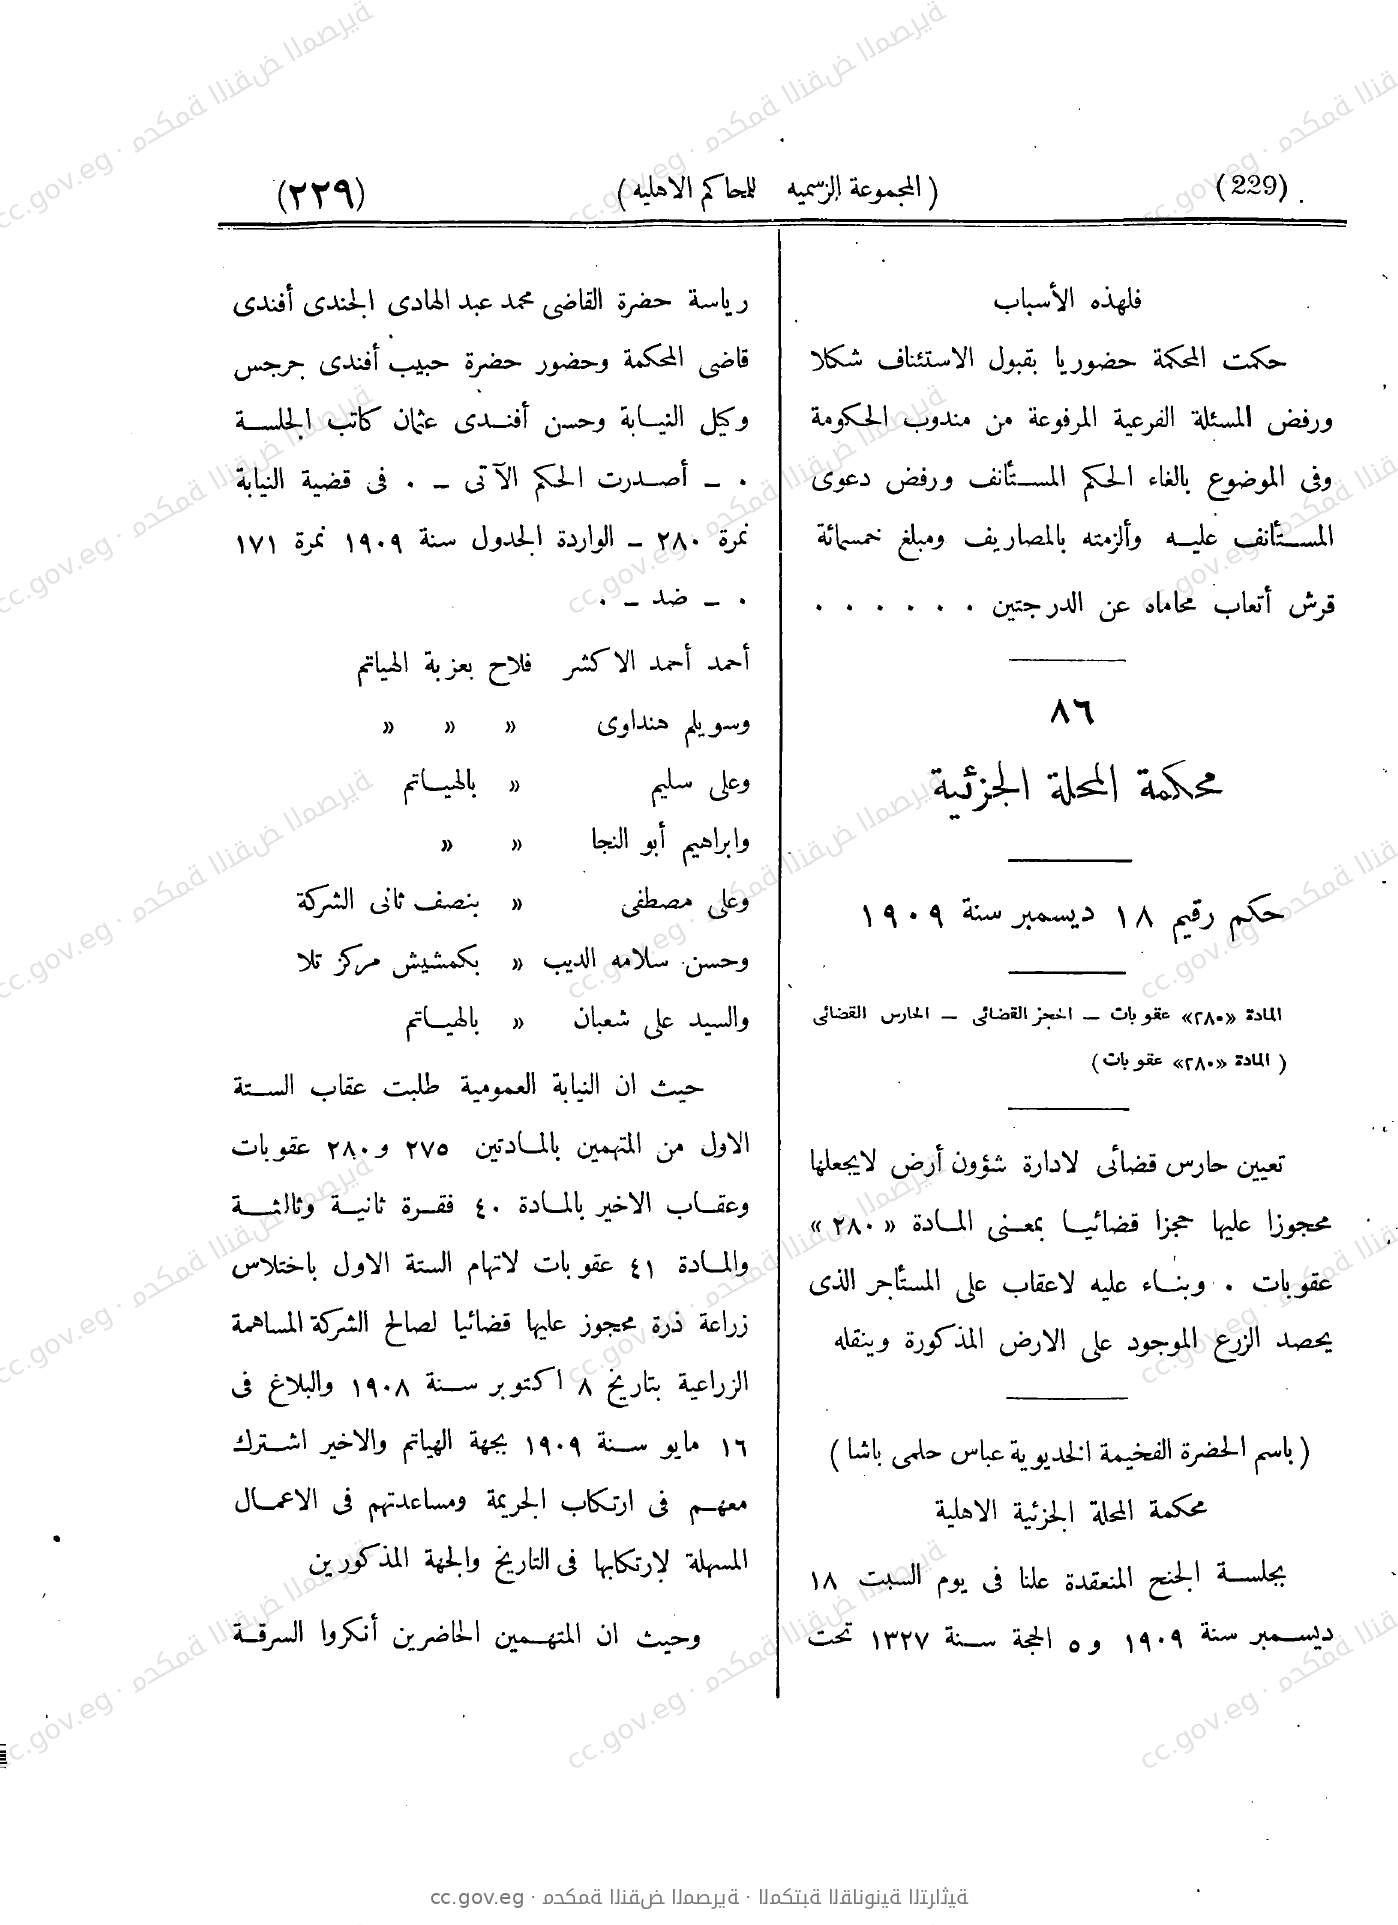 (229) ( المجموعة الرسميه للمحاكم الاهليه ) (٢٢٩)
فلهذه الأسباب
حكمت المحكمة حضوريا بقبول الاستئناف شكلا
ورفض المسئلة الفرعية المرفوعة من مندوب الحكومة
وفى الموضوع بالغاء الحكم المستأنف ورفض دعوى
المستأنف عليه وألزمته بالمصاريف ومبلغ خمسمائة
قرش أتعاب محاماه عن الدرجتين . . . . . .
٨٦
محكمة المحلة الجزئية
حكم رقيم ١٨ ديسمبر سنة ١٩٠٩
المادة «٢٨٠» عقوبات – الحجز القضائى – الحارس القضائى
( المادة «٢٨٠» عقوبات )
تعيين حارس قضائى لادارة شؤون أرض لايجعلها
محجوزا عليها حجزا قضائيا بمعنى المادة «٢٨٠»
عقوبات . وبناء عليه لاعقاب على المستأجر الذى
يحصد الزرع الموجود على الارض المذكورة وينقله
( باسم الحضرة الفخيمة الخديوية عباس حلمى باشا )
محكمة المحلة الجزئية الاهلية
بجلسة الجنح المنعقدة علنا فى يوم السبت ١٨
ديسمبر سنة ١٩٠٩ و ٥ الحجة سنة ١٣٢٧ تحت
رياسة حضرة القاضى محمد عبد الهادى الجندى أفندى
قاضى المحكمة وحضور حضرة حبيب أفندى جرجس
وكيل النيابة وحسن أفندى عثمان كاتب الجلسة
. – أصدرت الحكم الآتى – . فى قضية النيابة
نمرة ٢٨٠ – الواردة الجدول سنة ١٩٠٩ نمرة ١٧١
. – ضد – .
أحمد أحمد الاكشر فلاح بعزبة الهياتم
وسويلم هنداوى » » »
وعلى سليم » بالهياتم
وابراهيم أبو النجا » »
وعلى مصطفى » بنصف ثانى الشركة
وحسن سلامه الديب » بكمشيش مركز تلا
والسيد على شعبان » بالهياتم
حيث ان النيابة العمومية طلبت عقاب الستة
الاول من المتهمين بالمادتين ٢٧٥ و ٢٨٠ عقوبات
وعقاب الاخير بالمادة ٤٠ فقرة ثانية وثالثة
والمادة ٤١ عقوبات لاتهام الستة الاول باختلاس
زراعة ذرة محجوز عليها قضائيا لصالح الشركة المساهمة
الزراعية بتاريخ ٨ اكتوبر سنة ١٩٠٨ والبلاغ فى
١٦ مايو سنة ١٩٠٩ بجهة الهياتم والاخير اشترك
معهم فى ارتكاب الجريمة ومساعدتهم فى الاعمال
المسهلة لارتكابها فى التاريخ والجهة المذكورين
وحيث ان المتهمين الحاضرين أنكروا السرقة
cc.gov.eg · محكمة النقض المصرية · المكتبة القانونية التراثية